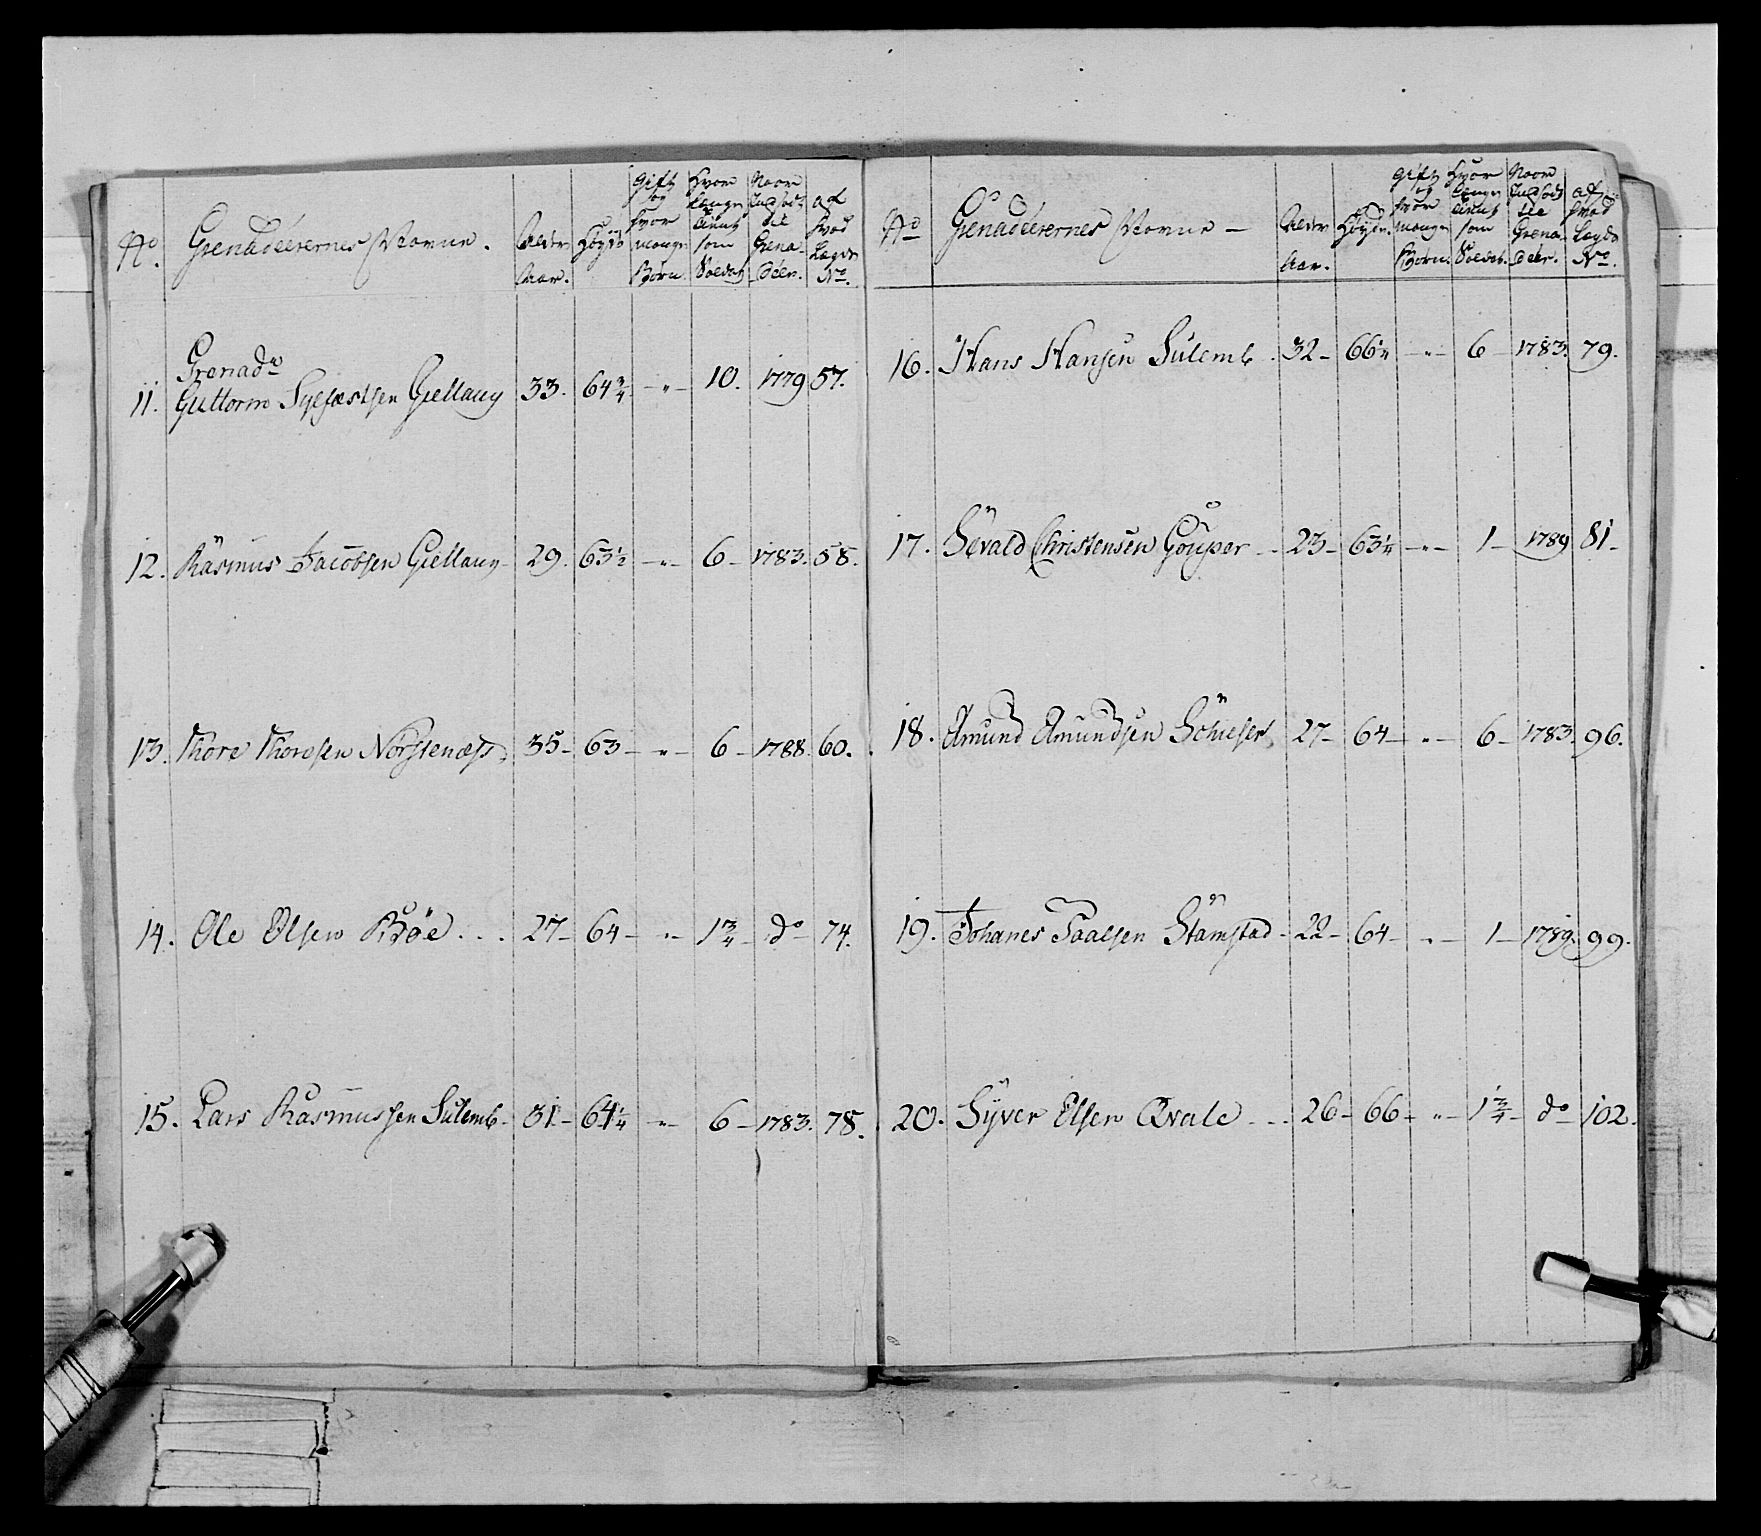 No. Grenadeerernes Navne. Alder Aar. Høyde Gift og hvor mange Børn. Hvor længe tient som Soldat Naar Indsadt til Grenadeer. af hvad Lægds No.
Grenadr
11. Guttorm Syfæstsen Giellany 33. 64 3/4 — " — 10. 1779 57.
12. Rasmus Jacobsen Giellany - 29. 63 1/2 — " — 6 — 1783. 58.
13. Thore Thoresen Norstenæss. 35 — 63 — " — 6 — 1788. 60.
14. Ole Olsen Bøe . . . 27 — 64 — " — 1 3/4 — do — 74.
15. Lars Rasmussen Sulemb. 31 — 64 1/4 — " — 6 — 1783. 78.
No Grenadeerernes Navne — Alder Aar. Høyde. Gift og hvor mange Børn. Hvor længe tient som Soldat. Naar Indsadt til Grenadeer. af hvad Lægds No.
16. Hans Hansen Sulemb . 32 — 66 1/4 — " — 6 — 1783. 79.
17. Sevald Christensen 23 — 63 1/4 — " — 1 — 1789 81 —
18. Amund Amundsen 27 — 64 — " — 6 — 1783. 96.
19. Johanes Paalsen Stamstad - 22 — 64 — " — 1 — 1789. 99.
20. Syver Olsen Qvale . . . 26 — 66 — " — 1 3/4 — do — 102.